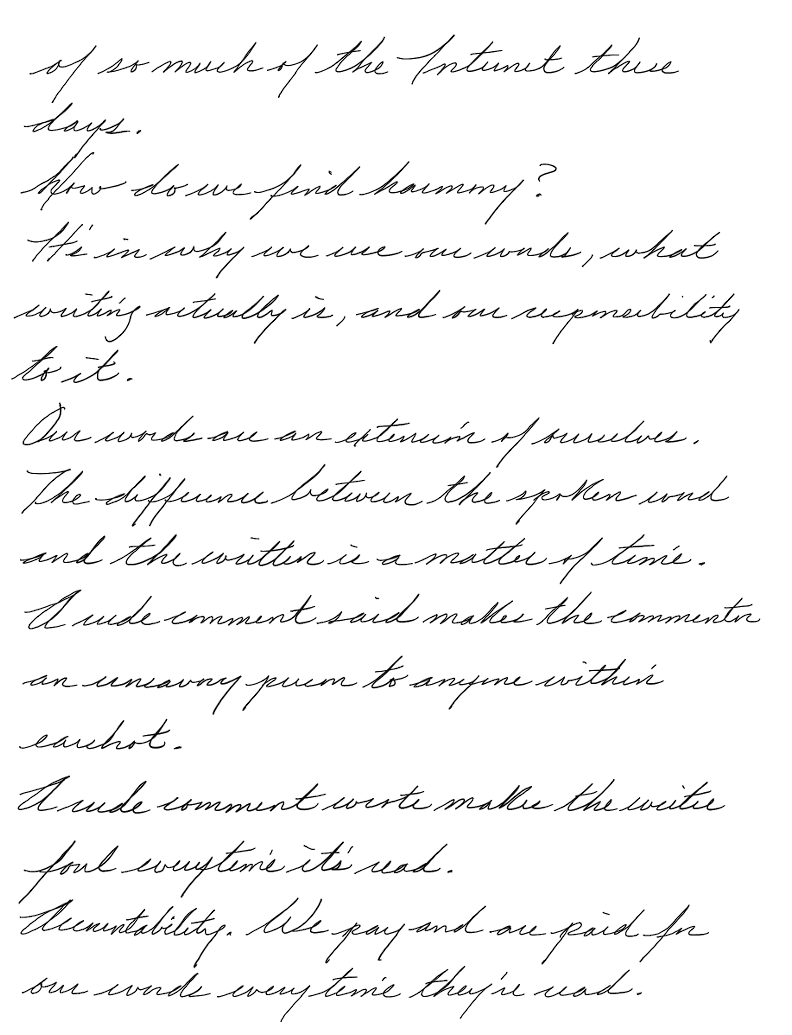 of so much of the Internet these
days.
How do we find harmony?
It's in why we use our words, what
writing actually is, and our responsibility
to it.
Our words are an extension of ourselves.
The difference between the spoken word
and the written is a matter of time.
A rude comment said makes the commentor
an unsavory person to anyone within
earshot.
A rude comment wrote makes the writer
foul everytime it's read.
Accountability. We pay and are paid for
our words every time they're read.